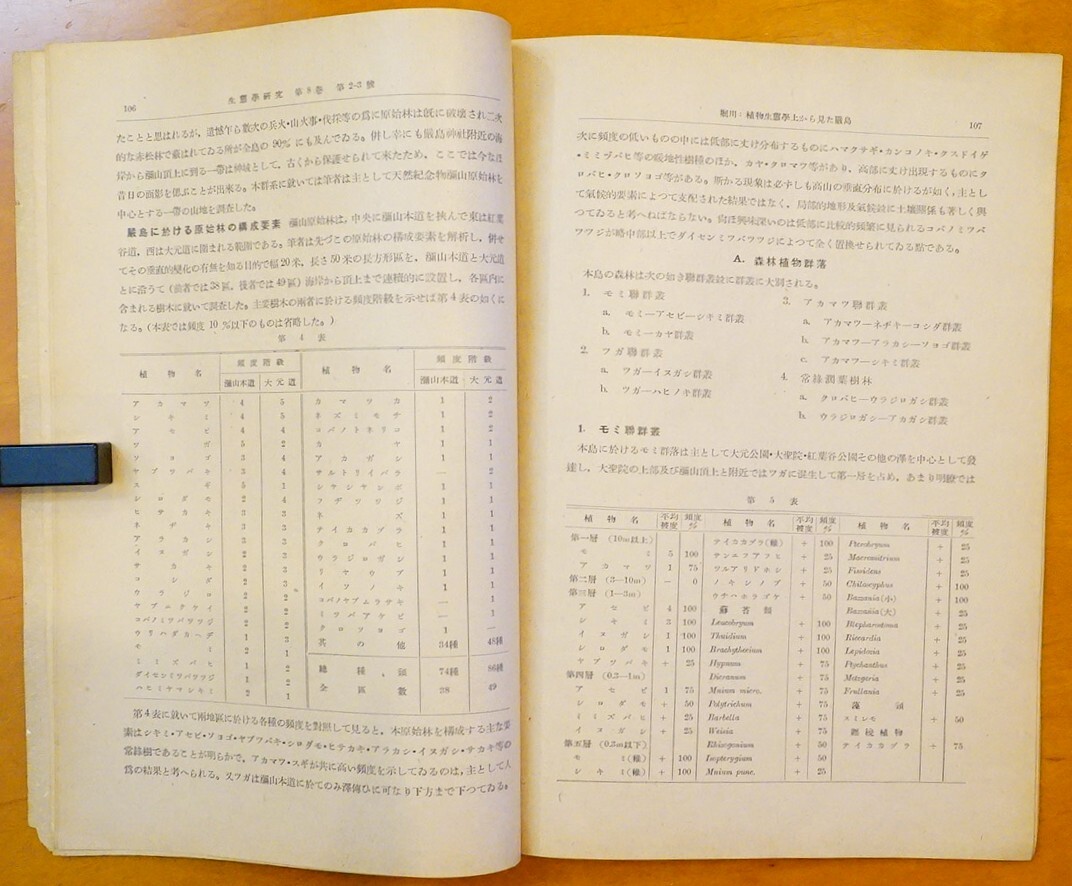 106
生態學研究 第8卷 第2-3號
たことと思はれるが、遺憾乍ら數次の兵火・山火事・伐採等の爲に原始林は既に破壞され二次
的な赤松林で蔽はれてゐる所が全島の 90% にも及んでゐる。併し幸にも嚴島神社附近の海
岸から彌山頂上に到る一帶は神域として、古くから保護せられて來たため、ここでは今なほ
昔日の面影を偲ぶことが出來る。本群系に就いては筆者は主として天然紀念物彌山原始林を
中心とする一帶の山地を調査した。
嚴島に於ける原始林の構成要素 彌山原始林は、中央に彌山本道を挾んで東は紅葉
谷道、西は大元道に圍まれる範圍である。筆者は先づこの原始林の構成要素を解析し、併せ
てその垂直的變化の有無を知る目的で幅20米、長さ50米の長方形區を、彌山本道と大元道
とに沿うて(前者では38區、後者では49區)海岸から頂上まで連續的に設置し、各區内に
含まれる樹木に就いて調査した。主要樹木の兩者に於ける頻度階級を示せば第4表の如くに
なる。(本表では頻度 10 %以下のものは省略した。)
第 4 表
植物名 頻度階級 植物名 頻度階級
彌山本道 大元道 彌山本道 大元道
アカマツ 4 5 カマツカ 1 2
シキミ 4 5 ネズミモチ 1 2
アセビ 4 4 コバノトネリコ 1 2
ツガ 5 2 カヤ 1 1
ソヨゴ 3 4 アカガシ 1 1
ヤブツバキ 3 4 サルトリイバラ — 2
スギ 5 1 シヤシヤンボ 1 1
シロダモ 2 4 フヂツツジ 1 1
ヒサカキ 3 3 ネズ 1 1
ネヂキ 3 3 テイカカヅラ 1 1
アラカシ 3 3 クロバヒ 1 1
イヌガシ 2 3 ウラジロガシ 1 1
サカキ 2 3 リヤウブ 1 1
コシダ 2 3 イソノキ 1 1
ウラジロ 2 2 コバノヤブムラサキ — 1
ヤブニクケイ 2 2 ミツバアケビ — 1
コバノミツバツツジ 2 2 クロソヨゴ 1 —
ウリハダカヘデ 1 3 其の他 34種 48種
モミ 2 1
ミミズバヒ 1 2 總種類 74種 86種
ダイセンミツバツツジ 1 2 全區數 38 49
ハヒミヤマシキミ 2 1
第4表に就いて兩地區に於ける各種の頻度を對照して見ると、本原始林を構成する主な要
素はシキミ・アセビ・ソヨゴ・ヤブツバキ・シロダモ・ヒサカキ・アラカシ・イヌガシ・サカキ等の
常綠樹であることが明らかで、アカマツ・スギが共に高い頻度を示してゐるのは、主として人
爲の結果と考へられる。又ツガは彌山本道に於てのみ澤傳ひに可なり下方まで下つてゐる。
堀川：植物生態學上から見た嚴島
107
次に頻度の低いものの中には低部に丈け分布するものにハマクサギ・カンコノキ・クスドイゲ
・ミミヅバヒ等の暖地性樹種のほか、カヤ・クロマツ等があり、高部に丈け出現するものにタ
ロバヒ・クロソヨゴ等がある。斯かる現象は必ずしも高山の垂直分布に於けるが如く、主とし
て氣候的要素によつて支配された結果ではなく、局部的地形及氣候竝に土壤關係も著しく與
つてゐると考へねばならない。尙ほ興味深いのは低部に比較的頻繁に見られるコバノミツバ
ツツジが略中部以上でダイセンミツバツツジによつて全く置換せられてゐる點である。
A. 森林植物群落
本島の森林は次の如き聯群叢竝に群叢に大別される。
1. モミ聯群叢
a. モミーアセビーシキミ群叢
b. モミーカヤ群叢
2. ツガ聯群叢
a. ツガーイヌガシ群叢
b. ツガーハヒノキ群叢
3. アカマツ聯群叢
a. アカマツーネヂキーコシダ群叢
b. アカマツーアラカシーソヨゴ群叢
c. アカマツーシキミ群叢
4. 常綠濶葉樹林
a. クロバヒーウラジロガシ群叢
b. ウラジロガシーアカガシ群叢
1. モミ聯群叢
本島に於けるモミ群落は主として大元公園・大聖院・紅葉谷公園その他の澤を中心として發
達し、大聖院の上部及び彌山頂上と附近ではツガに混生して第一層を占め、あまり明瞭では
第 5 表
植物名 平均被度 頻度% 植物名 平均被度 頻度% 植物名 平均被度 頻度%
第一層 (10m以上) テイカカヅラ(稚) + 100 Pterobryum + 25
モミ 5 100 + 25 Macromitrium + 25
アカマツ 1 75 ツルアリドホシ + 25 Fissidens + 25
第二層 (3—10m) — 0 ノキシノブ + 50 Chiloscyphus + 100
第三層 (1—3m) ウチハホラゴケ + 50 Bazzania(小) + 100
アセビ 4 100 蘚苔類 Bazzania(大) + 25
シキミ 3 100 Leucobryum + 100 Blepharostoma + 25
イヌガシ 1 100 Thuidium + 100 Riccardia + 25
シロダモ 1 100 Brachythecium + 100 Lepidozia + 25
ヤブツバキ + 25 Hypnum + 75 Ptychanthus + 25
第四層 (0.3—1m) Dicranum + 75 Metzgeria + 25
アセビ 1 75 Mnium micro. + 75 Frullania + 25
シロダモ + 50 Polytrichum + 75 藻類
ミミズバヒ + 25 Barbella + 75 スミレモ + 50
イヌガシ + 25 Weisia + 75 纏繞植物
第五層 (0.3m以下) Rhizogonium + 50 テイカカヅラ + 75
モミ(稚) + 100 Isopterygium + 50
シキミ(稚) + 100 Mnium punc. + 25